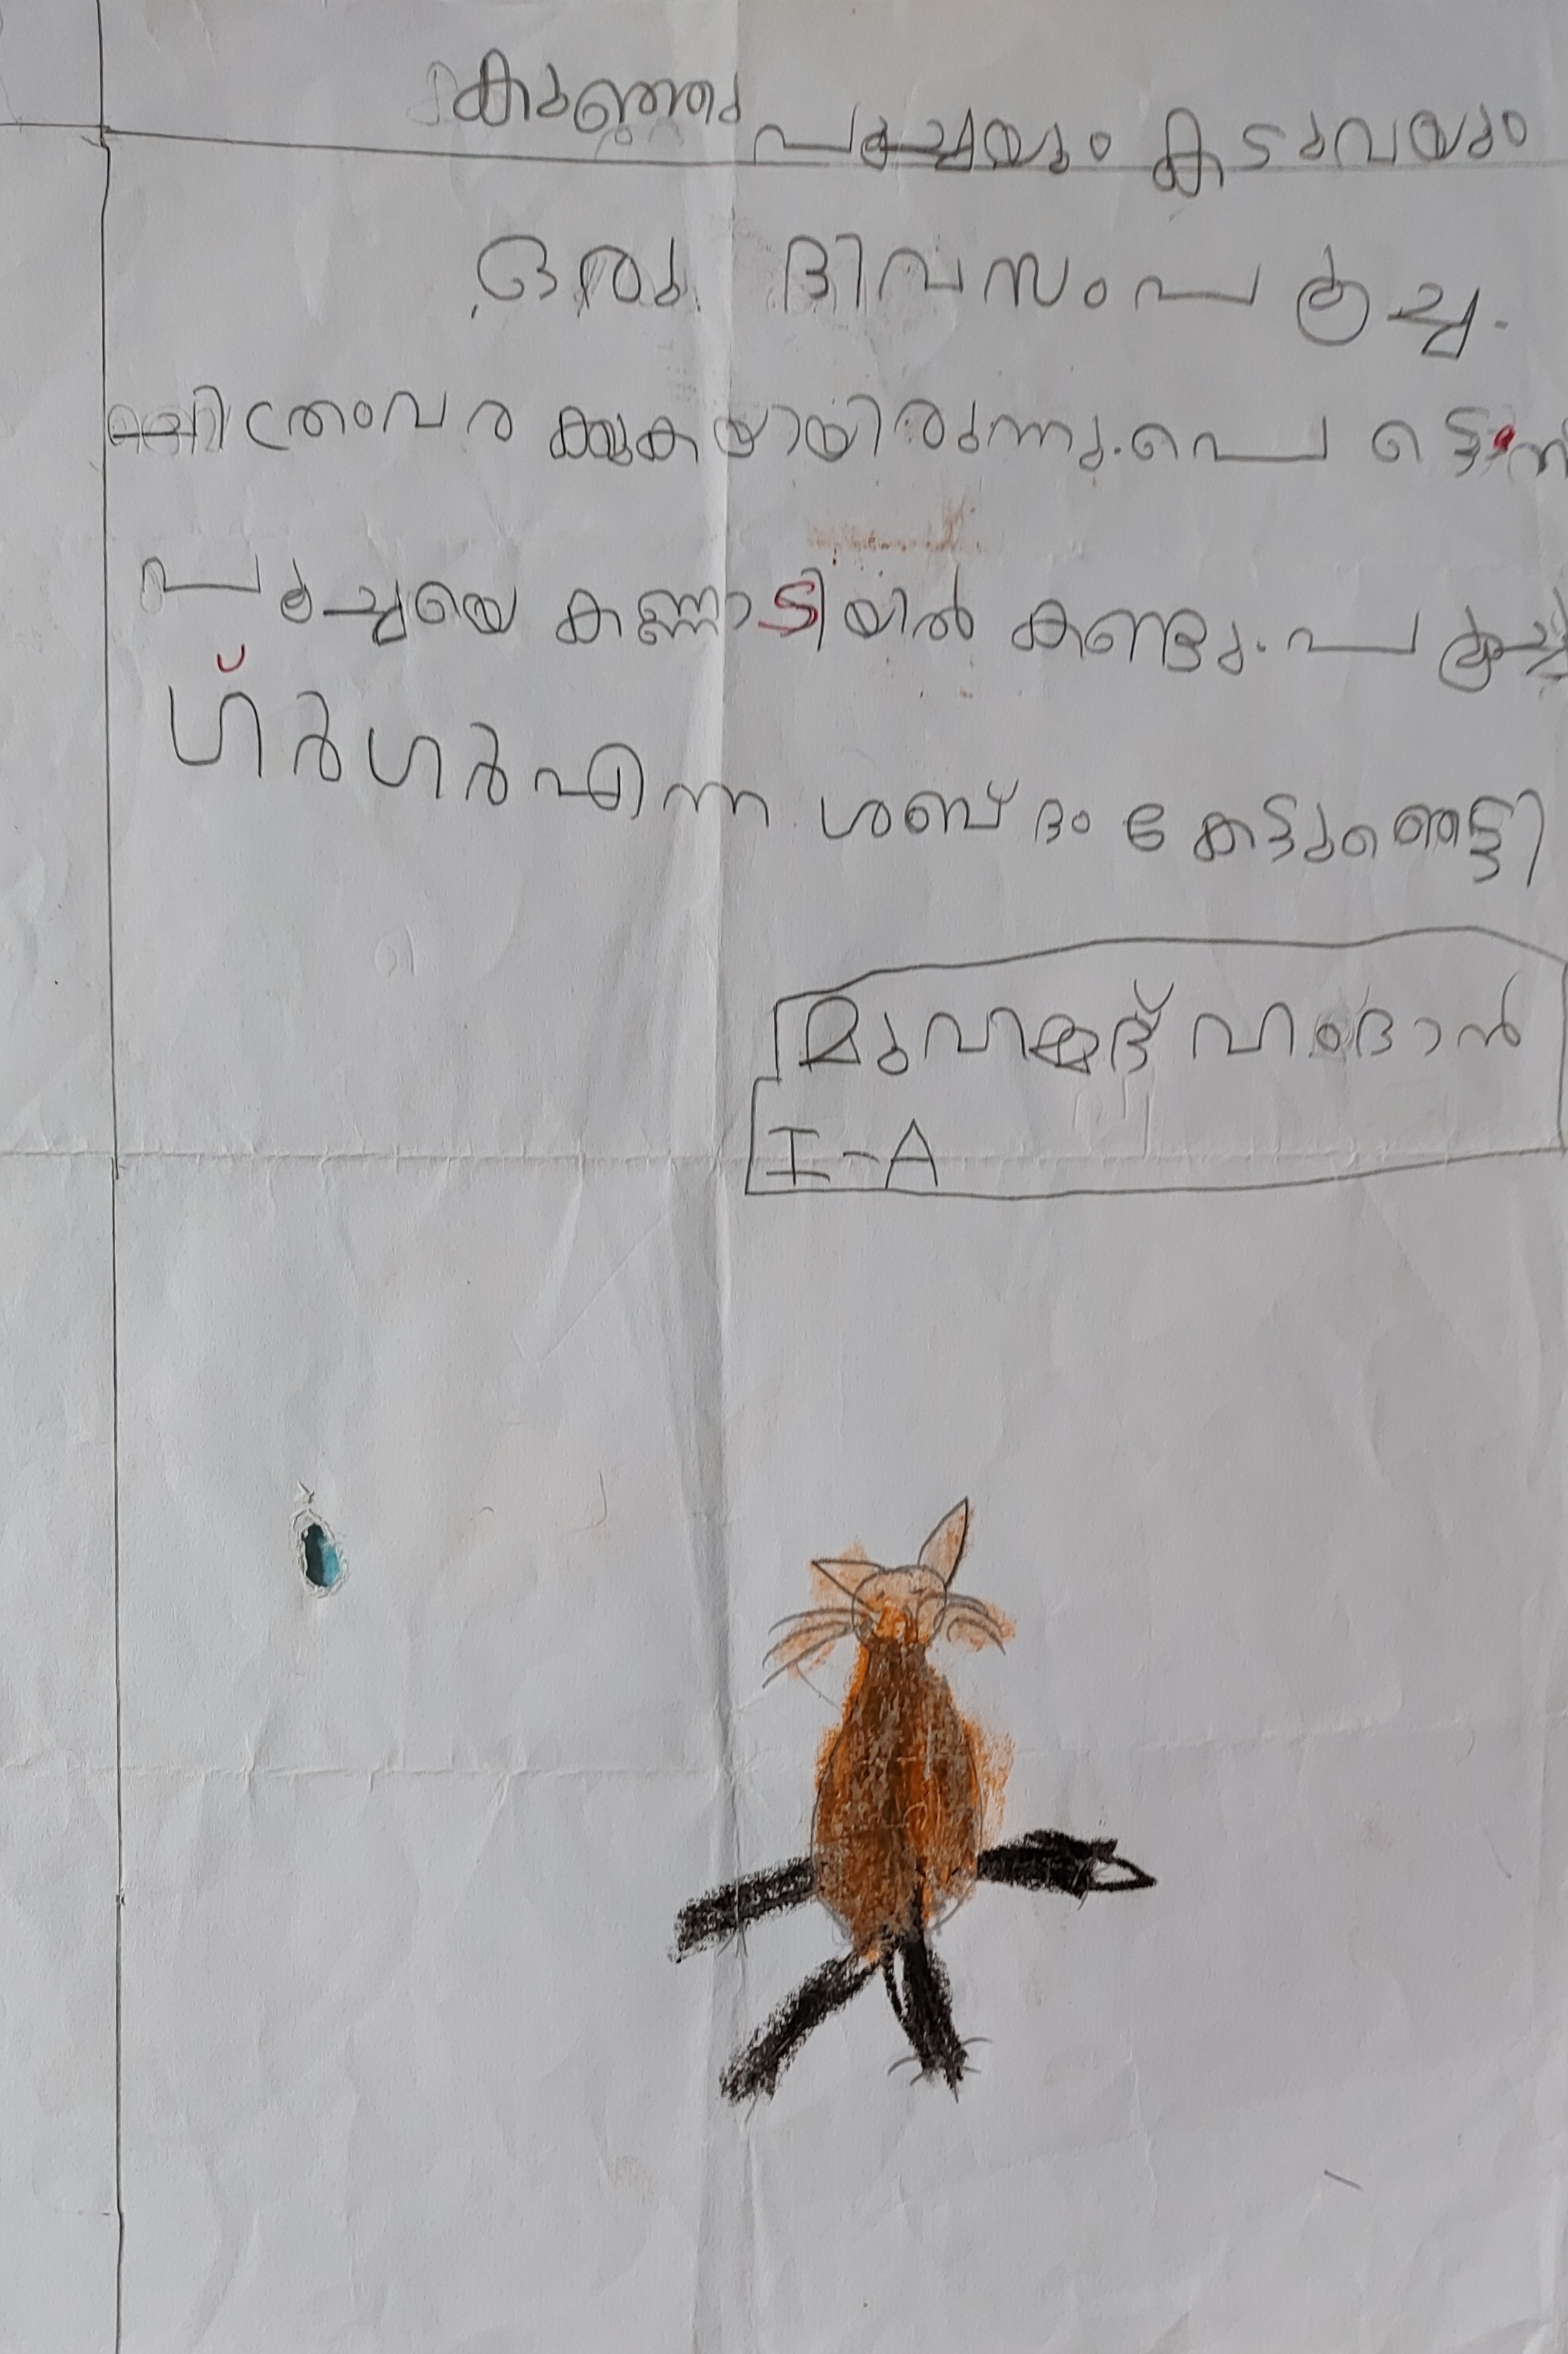 കുഞ്ഞു പൂച്ചയും കടുവയും
ഒരു ദിവസം പൂച്ച
ചിത്രം വരക്കുകയായിരുന്നു. പെട്ടെന്ന്
പൂച്ചയെ കണ്ണാടിയിൽ കണ്ടു. പൂച്ച
ഗ്ർഗർ എന്ന ശബ്ദം കേട്ടു ഞെട്ടി
മുഹമ്മദ് ഹംദാൻ
I-A